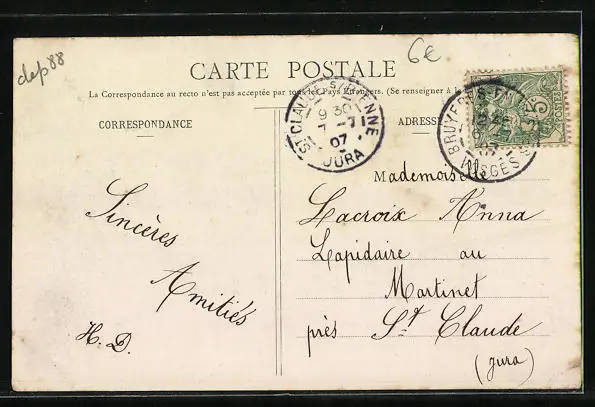 dep88
6€
CARTE POSTALE
La Correspondance au recto n'est pas acceptée par tous les Pays Etrangers. (Se renseigner à la
CORRESPONDANCE
ADRESSE
ST CLAUDE S. BIENNE
9 30
7 -7
07
JURA
BRUYERES-EN-VOSGES
07
VOSGES
POSTES
5
Mademoiselle
Lacroix Anna
Lapidaire au
Martinet
près St Claude
(Jura)
Sincères
Amitiés
H. D.